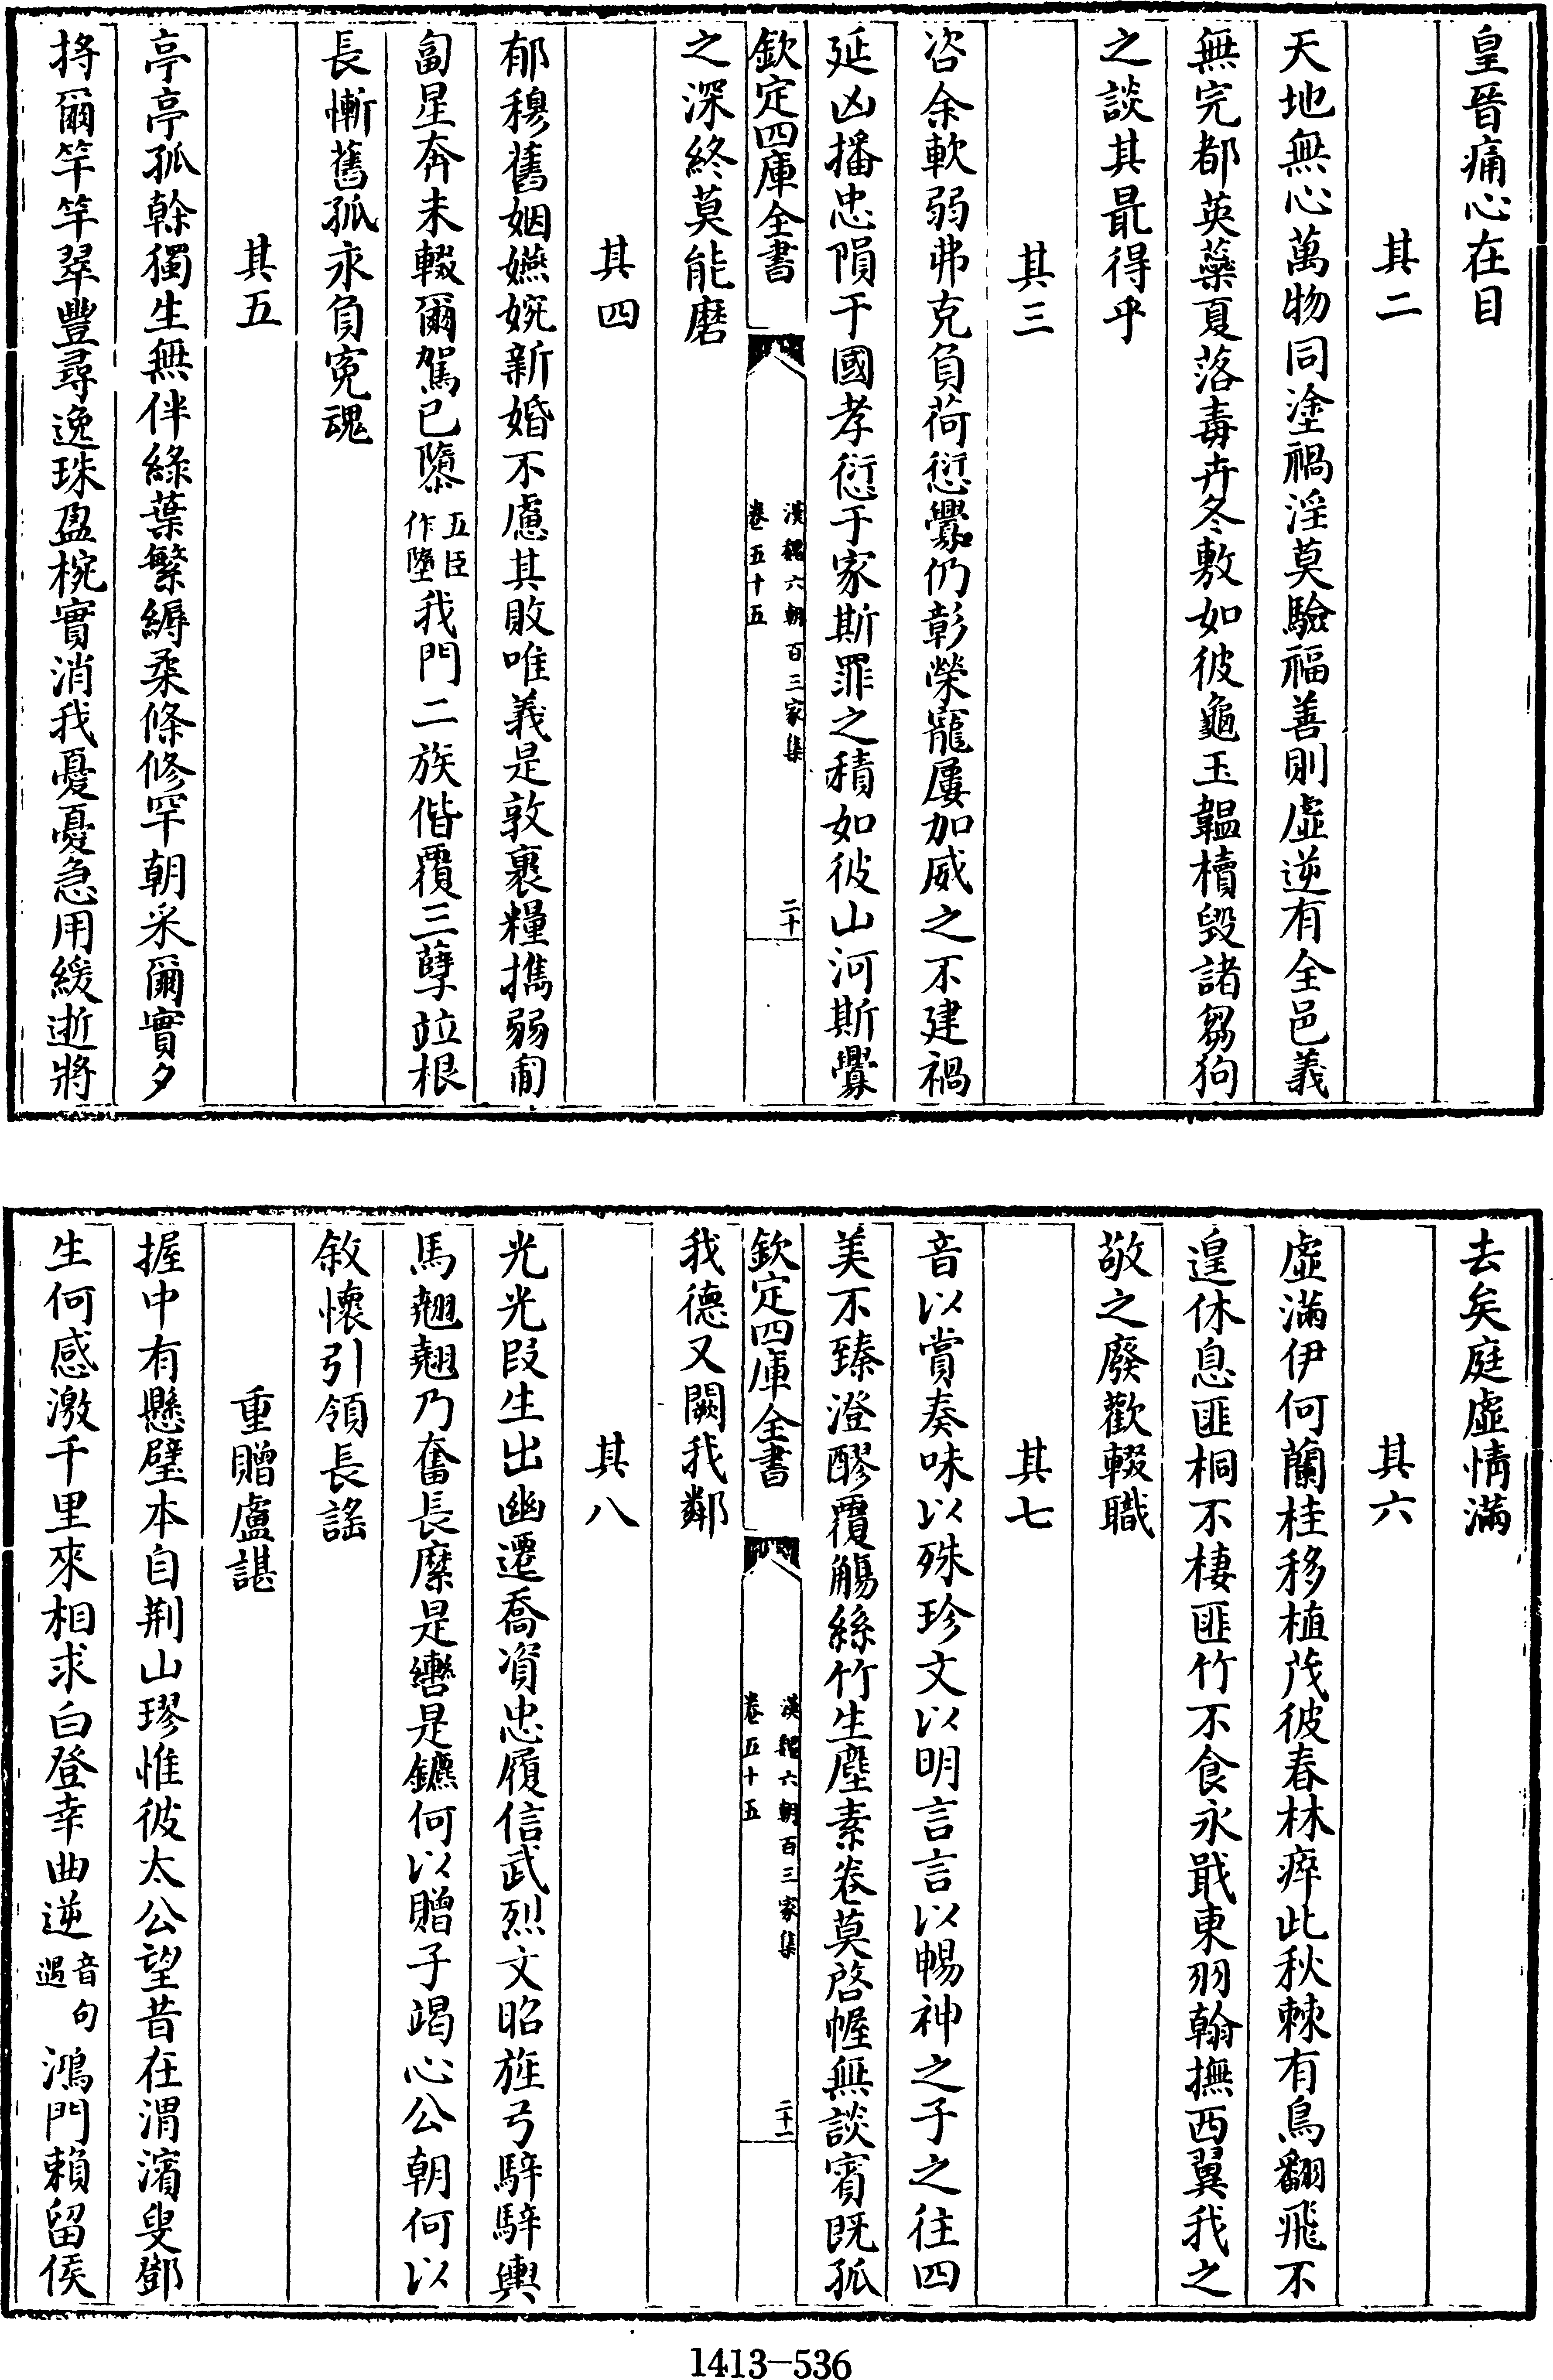 皇晉痛心在目
其二
天地無心萬物同塗禍淫莫驗福善則虛逆有全邑義
無完都英蘂夏落毒卉冬敷如彼龜玉韞櫝毀諸芻狗
之談其最得乎
其三
咨余軟弱弗克負荷愆釁仍彰榮寵屢加威之不建禍
延凶播忠隕于國孝愆于家斯罪之積如彼山河斯釁
欽定四庫全書
漢魏六朝百三家集
卷五十五
二十
之深終莫能磨
其四
郁穆舊姻嬿婉新婚不慮其敗唯義是敦裹糧攜弱匍
匐星奔未輟爾駕已隳五臣作墮我門二族偕覆三孽竝根
長慚舊孤永負寃魂
其五
亭亭孤幹獨生無伴綠葉繁縟柔條修罕朝采爾實夕
捋爾竿竿翠豐尋逸珠盈椀實消我憂憂急用緩逝將
去矣庭虛情滿
其六
虛滿伊何蘭桂移植茂彼春林瘁此秋棘有鳥翻飛不
遑休息匪桐不棲匪竹不食永戢東羽翰撫西翼我之
敬之廢歡輟職
其七
音以賞奏味以殊珍文以明言言以暢神之子之往四
美不臻澄醪覆觴絲竹生塵素卷莫啓幄無談賓既孤
欽定四庫全書
漢魏六朝百三家集
卷五十五
二十一
我德又闕我鄰
其八
光光段生出幽遷喬資忠履信武烈文昭旌弓騂騂輿
馬翹翹乃奮長縻是轡是鑣何以贈子竭心公朝何以
敘懷引領長謠
重贈盧諶
握中有懸璧本自荆山璆惟彼太公望昔在渭濱叟鄧
生何感激千里來相求白登幸曲逆音句遇鴻門賴留侯
1413—536